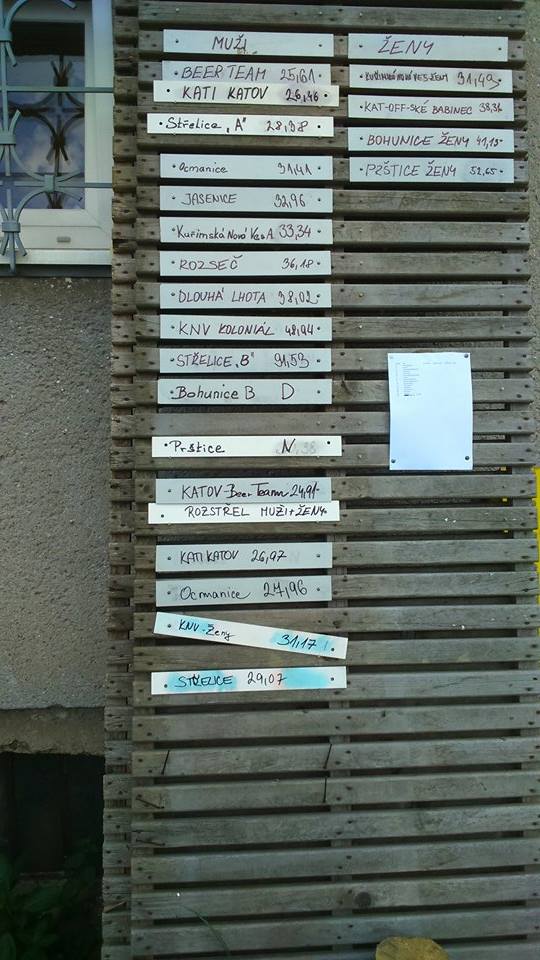 MUŽI
BEER TEAM 25,61
KATI KATOV 26,46
Střelice „A" 28,98
Ocmanice 31,41
JASENICE 32,96
Kuřimská Nová Ves A 33,34
ROZSEČ 36,18
DLOUHÁ LHOTA 38,02
KNV KOLONIÁL 48,94
STŘELICE „B" 91,53
Bohunice B D
Prštice N
KATOV-Beer Team 24,91
ROZSTŘEL MUŽI+ŽENY
KATI KATOV 26,97
Ocmanice 27,96
KNV-Ženy 31,17
STŘELICE 29,07
ŽENY
KUŘIMSKÁ NOVÁ VES ŽENY 31,49
KAT-OFF-SKÉ BABINEC
BOHUNICE ŽENY 41,15
PRŠTICE ŽENY 52,65